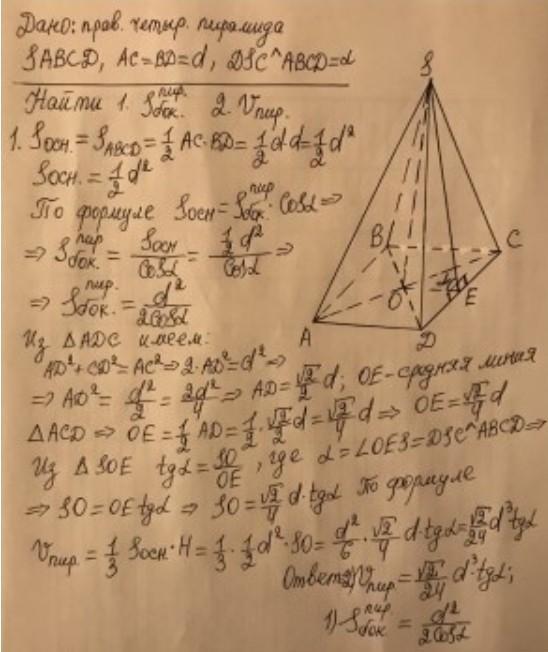 Дано: прав. четыр. пирамида
SABCD, AC=BD=d, DSC^ABCD=α
Найти 1. Sбок.пир. 2. Vпир.
1. Sосн.=SABCD=1/2 AC·BD=1/2 d·d=1/2 d²
Sосн.=1/2 d²
По формуле Sосн=Sбок.пир·Cosα⇒
⇒ Sбок.пир=Sосн/Cosα=(1/2 d²)/Cosα⇒
⇒ Sбок.пир.=d²/2Cosα
Из △ADC имеем:
AD²+CD²=AC²⇒2·AD²=d²⇒
⇒ AD²=d²/2=2d²/4⇒AD=√2/2 d; OE-средняя линия
△ACD ⇒ OE=1/2 AD=1/2·√2/2 d=√2/4 d⇒ OE=√2/4 d
Из △SOE tgα=SO/OE, где α=∠OES=DSC^ABCD⇒
⇒ SO=OE tgα ⇒ SO=√2/4 d·tgα По формуле
Vпир.=1/3 Sосн·H=1/3·1/2 d²·SO=d²/6·√2/4 d·tgα=√2/24 d³tgα
Ответ: 2) Vпир.=√2/24 d³·tgα;
1) Sбок.пир.=d²/2Cosα
S
B
C
O
E
A
D